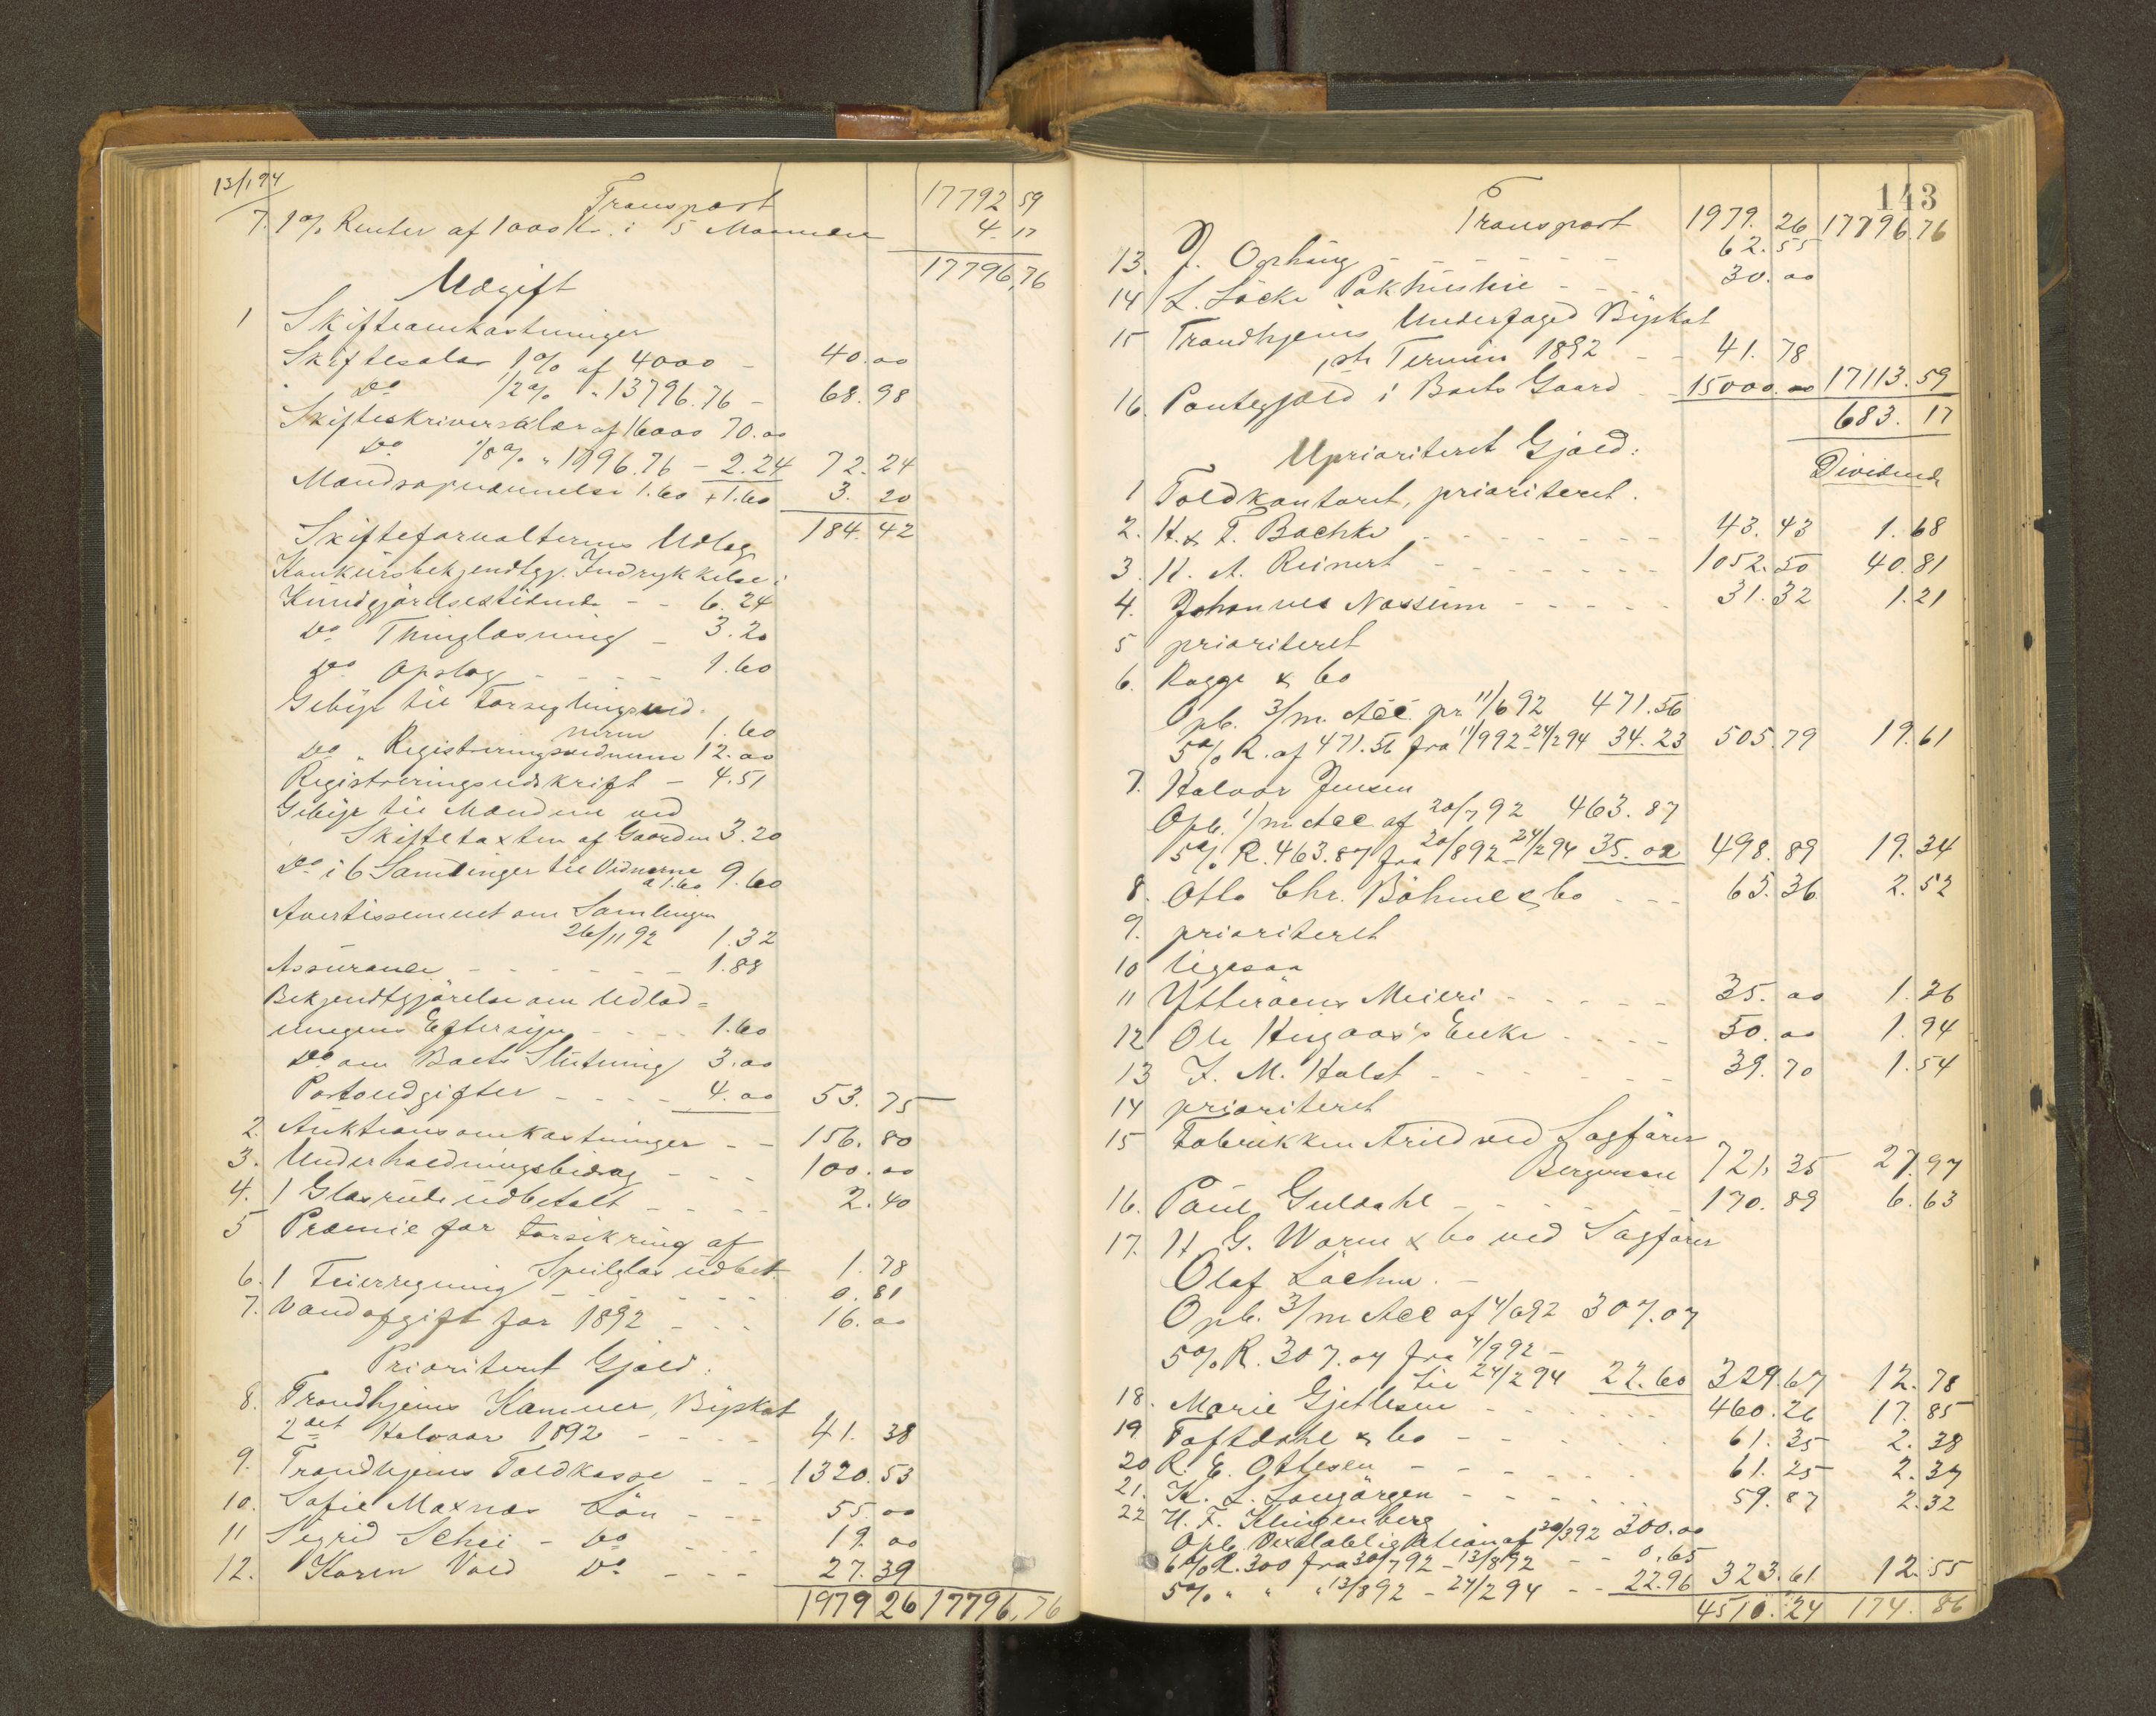 13/1 94
Transport 17792 59
7. 1% Renter af 1000 Kr. i 5 Maaneder 4. 17
17796,76
Udgift
1 Skifteomkostninger
Skiftesalær 1% af 4000 - 40.00
Do 1/2% " 13796.76 - 68.98
Skifteskriversalær af 16000 70.00
Do 1/8% " 1796.76 - 2.24 72.24
Mændsopnævnelse 1.60 + 1.60 3. 20
184.42
Skifteforvalterens Udlæg
Konkursbekjendtgj. Indrykkelse i
Kundgjörelsestidende - - 6.24
Do Thinglæsning - 3.20
Do Opslag - - - - 1.60
Gebyr til Forseglingsvid-
nerne 1.60
Do " Registreringsvidnerne 12.00
Registreringsudskrift - 4.51
Gebyr til Mændene ved
Skiftetaxten af Gaarden 3.20
Do i 6 Samlinger til Vidnerne
a 1.60 9.60
Avertissement om Samlingen
26/11 92 1.32
Assurance - - - - - - 1.88
Bekjendtgjörelse om Udlod=
ningens Eftersyn - - - - 1.60
Do om Boets Slutning 3.00
Portoudgifter - - - - 4.00 53. 75
2. Auktionsomkostninger - - 156. 80
3. Underholdningsbidrag - - - 100.00
4. 1 Glasrude udbetalt - - - - 2.40
5 Præmie for Forsikring af
Speilglas udbet. 1.78
6. 1 Feierregning - - - - - - 0.81
7. Vandafgift for 1892 - - - 16.00
Prioriteret Gjæld:
8. Trondhjems Kæmner, Byskat
2det Halvaar 1892 - - - - 41. 38
9. Trondhjems Toldkasse - - 1320.53
10. Sofie Moxnæs Lön - - - 55.00
11 Sigrid Schei - Do - - - 19.00
12. Karen Vold Do - - - 27.39
1979 26 17796,76
143
Transport 1979. 26 17796.76
13. J. Ophüng - - - - - - 62.55
14 L. Löcke Pakhusleie - - - 30.00
15 Trondhjems Underfoged Byskat
1ste Termin 1892 - - 41. 78
16. Pantegjæld i Boets Gaard - 15000.00 17113.59
683. 17
Uprioriteret Gjæld:
Dividende
1 Toldkontoret, prioriteret.
2. H. & F. Bachke - - - - - - - 43.43 1.68
3. H. A. Reinert - - - - - - - 1052.50 40.81
4. Johannes Nossum - - - - - 31.32 1.21
5 prioriteret
6. Rogge & Co
Opb. 3/m. Acc. pr 11/6 92 471.56
5% R. af 471.56 fra 11/9 92 - 24/2 94 34.23 505.79 19.61
7. Halvor Jensen
Opb. 1/m Acc af 20/7 92 463.87
5% R. 463.87 fra 20/8 92 - 24/2 94 35.02 498.89 19.34
8. Otto Chr. Böhme & Co - - - 65.36 2.52
9. prioriteret
10 ligesaa
11 Ytteröens Meieri - - - - - 35.00 1.36
12 Ole Hugaas's Enke - - - - 50.00 1.94
13 F. M. Holst - - - - - - - 39.70 1.54
14 prioriteret
15 Fabrikken Arild ved Sagförer
Bergersen 721.35 27.97
16. Paul Guldahl - - - - - - 170.89 6.63
17. H G. Worm & Co ved Sagförer
Olaf Löchen. -
Opb. 3/m Acc af 7/6 92 307.07
5% R. 307.07 fra 7/9 92 -
til 24/2 94 22.60 329.67 12.78
18. Marie Gjetlesen - - - - - - 460.26 17.85
19 Toftdahl & Co - - - - - 61.35 2.38
20 R. E. Ottesen - - - - - - 61.25 2.37
21. K. L. Langörgen - - - - - 59.87 2.32
22 H. F. Klingenberg
Opb. Vexelobligation af 30/3 92 300.00
6% R. 300 fra 30/7 92 - 13/8 92 - - 0.65
5% " " " 13/8 92 - 24/2 94 - - 22.96 323.61 12.55
4510.24 174.86